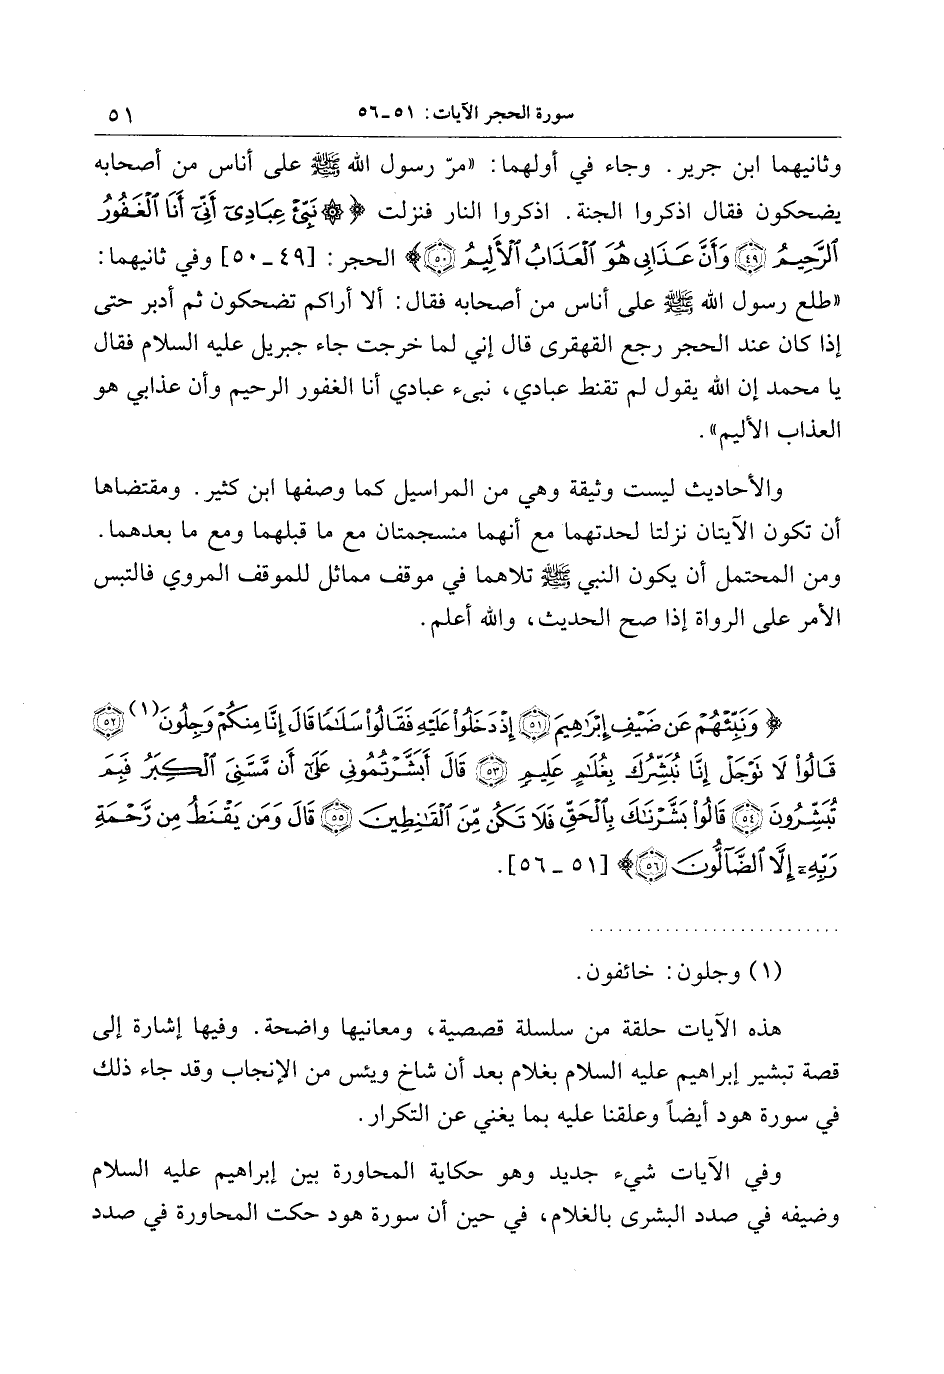 سورة الحجر الآيات: ٥١ـ٥٦ ٥١
وثانيهما ابن جرير. وجاء في أولهما: «مرّ رسول الله ﷺ على أناس من أصحابه
يضحكون فقال اذكروا الجنة. اذكروا النار فنزلت ﴿۞ نَبِّئْ عِبَادِىٓ أَنِّىٓ أَنَا ٱلْغَفُورُ
ٱلرَّحِيمُ ٤٩ وَأَنَّ عَذَابِى هُوَ ٱلْعَذَابُ ٱلْأَلِيمُ ٥٠﴾ الحجر: [٤٩ ـ ٥٠] وفي ثانيهما:
«طلع رسول الله ﷺ على أناس من أصحابه فقال: ألا أراكم تضحكون ثم أدبر حتى
إذا كان عند الحجر رجع القهقرى قال إني لما خرجت جاء جبريل عليه السلام فقال
يا محمد إن الله يقول لم تقنط عبادي، نبىء عبادي أنا الغفور الرحيم وأن عذابي هو
العذاب الأليم».
والأحاديث ليست وثيقة وهي من المراسيل كما وصفها ابن كثير. ومقتضاها
أن تكون الآيتان نزلتا لحدتهما مع أنهما منسجمتان مع ما قبلهما ومع ما بعدهما.
ومن المحتمل أن يكون النبي ﷺ تلاهما في موقف مماثل للموقف المروي فالتبس
الأمر على الرواة إذا صح الحديث، والله أعلم.
﴿وَنَبِّئْهُمْ عَن ضَيْفِ إِبْرَٰهِيمَ ٥١ إِذْ دَخَلُوا۟ عَلَيْهِ فَقَالُوا۟ سَلَـٰمًا قَالَ إِنَّا مِنكُمْ وَجِلُونَ(١) ٥٢
قَالُوا۟ لَا تَوْجَلْ إِنَّا نُبَشِّرُكَ بِغُلَـٰمٍ عَلِيمٍ ٥٣ قَالَ أَبَشَّرْتُمُونِى عَلَىٰٓ أَن مَّسَّنِىَ ٱلْكِبَرُ فَبِمَ
تُبَشِّرُونَ ٥٤ قَالُوا۟ بَشَّرْنَـٰكَ بِٱلْحَقِّ فَلَا تَكُن مِّنَ ٱلْقَـٰنِطِينَ ٥٥ قَالَ وَمَن يَقْنَطُ مِن رَّحْمَةِ
رَبِّهِۦٓ إِلَّا ٱلضَّآلُّونَ ٥٦﴾ [٥١ ـ ٥٦].
(١) وجلون: خائفون.
هذه الآيات حلقة من سلسلة قصصية، ومعانيها واضحة. وفيها إشارة إلى
قصة تبشير إبراهيم عليه السلام بغلام بعد أن شاخ ويئس من الإنجاب وقد جاء ذلك
في سورة هود أيضاً وعلقنا عليه بما يغني عن التكرار.
وفي الآيات شيء جديد وهو حكاية المحاورة بين إبراهيم عليه السلام
وضيفه في صدد البشرى بالغلام، في حين أن سورة هود حكت المحاورة في صدد